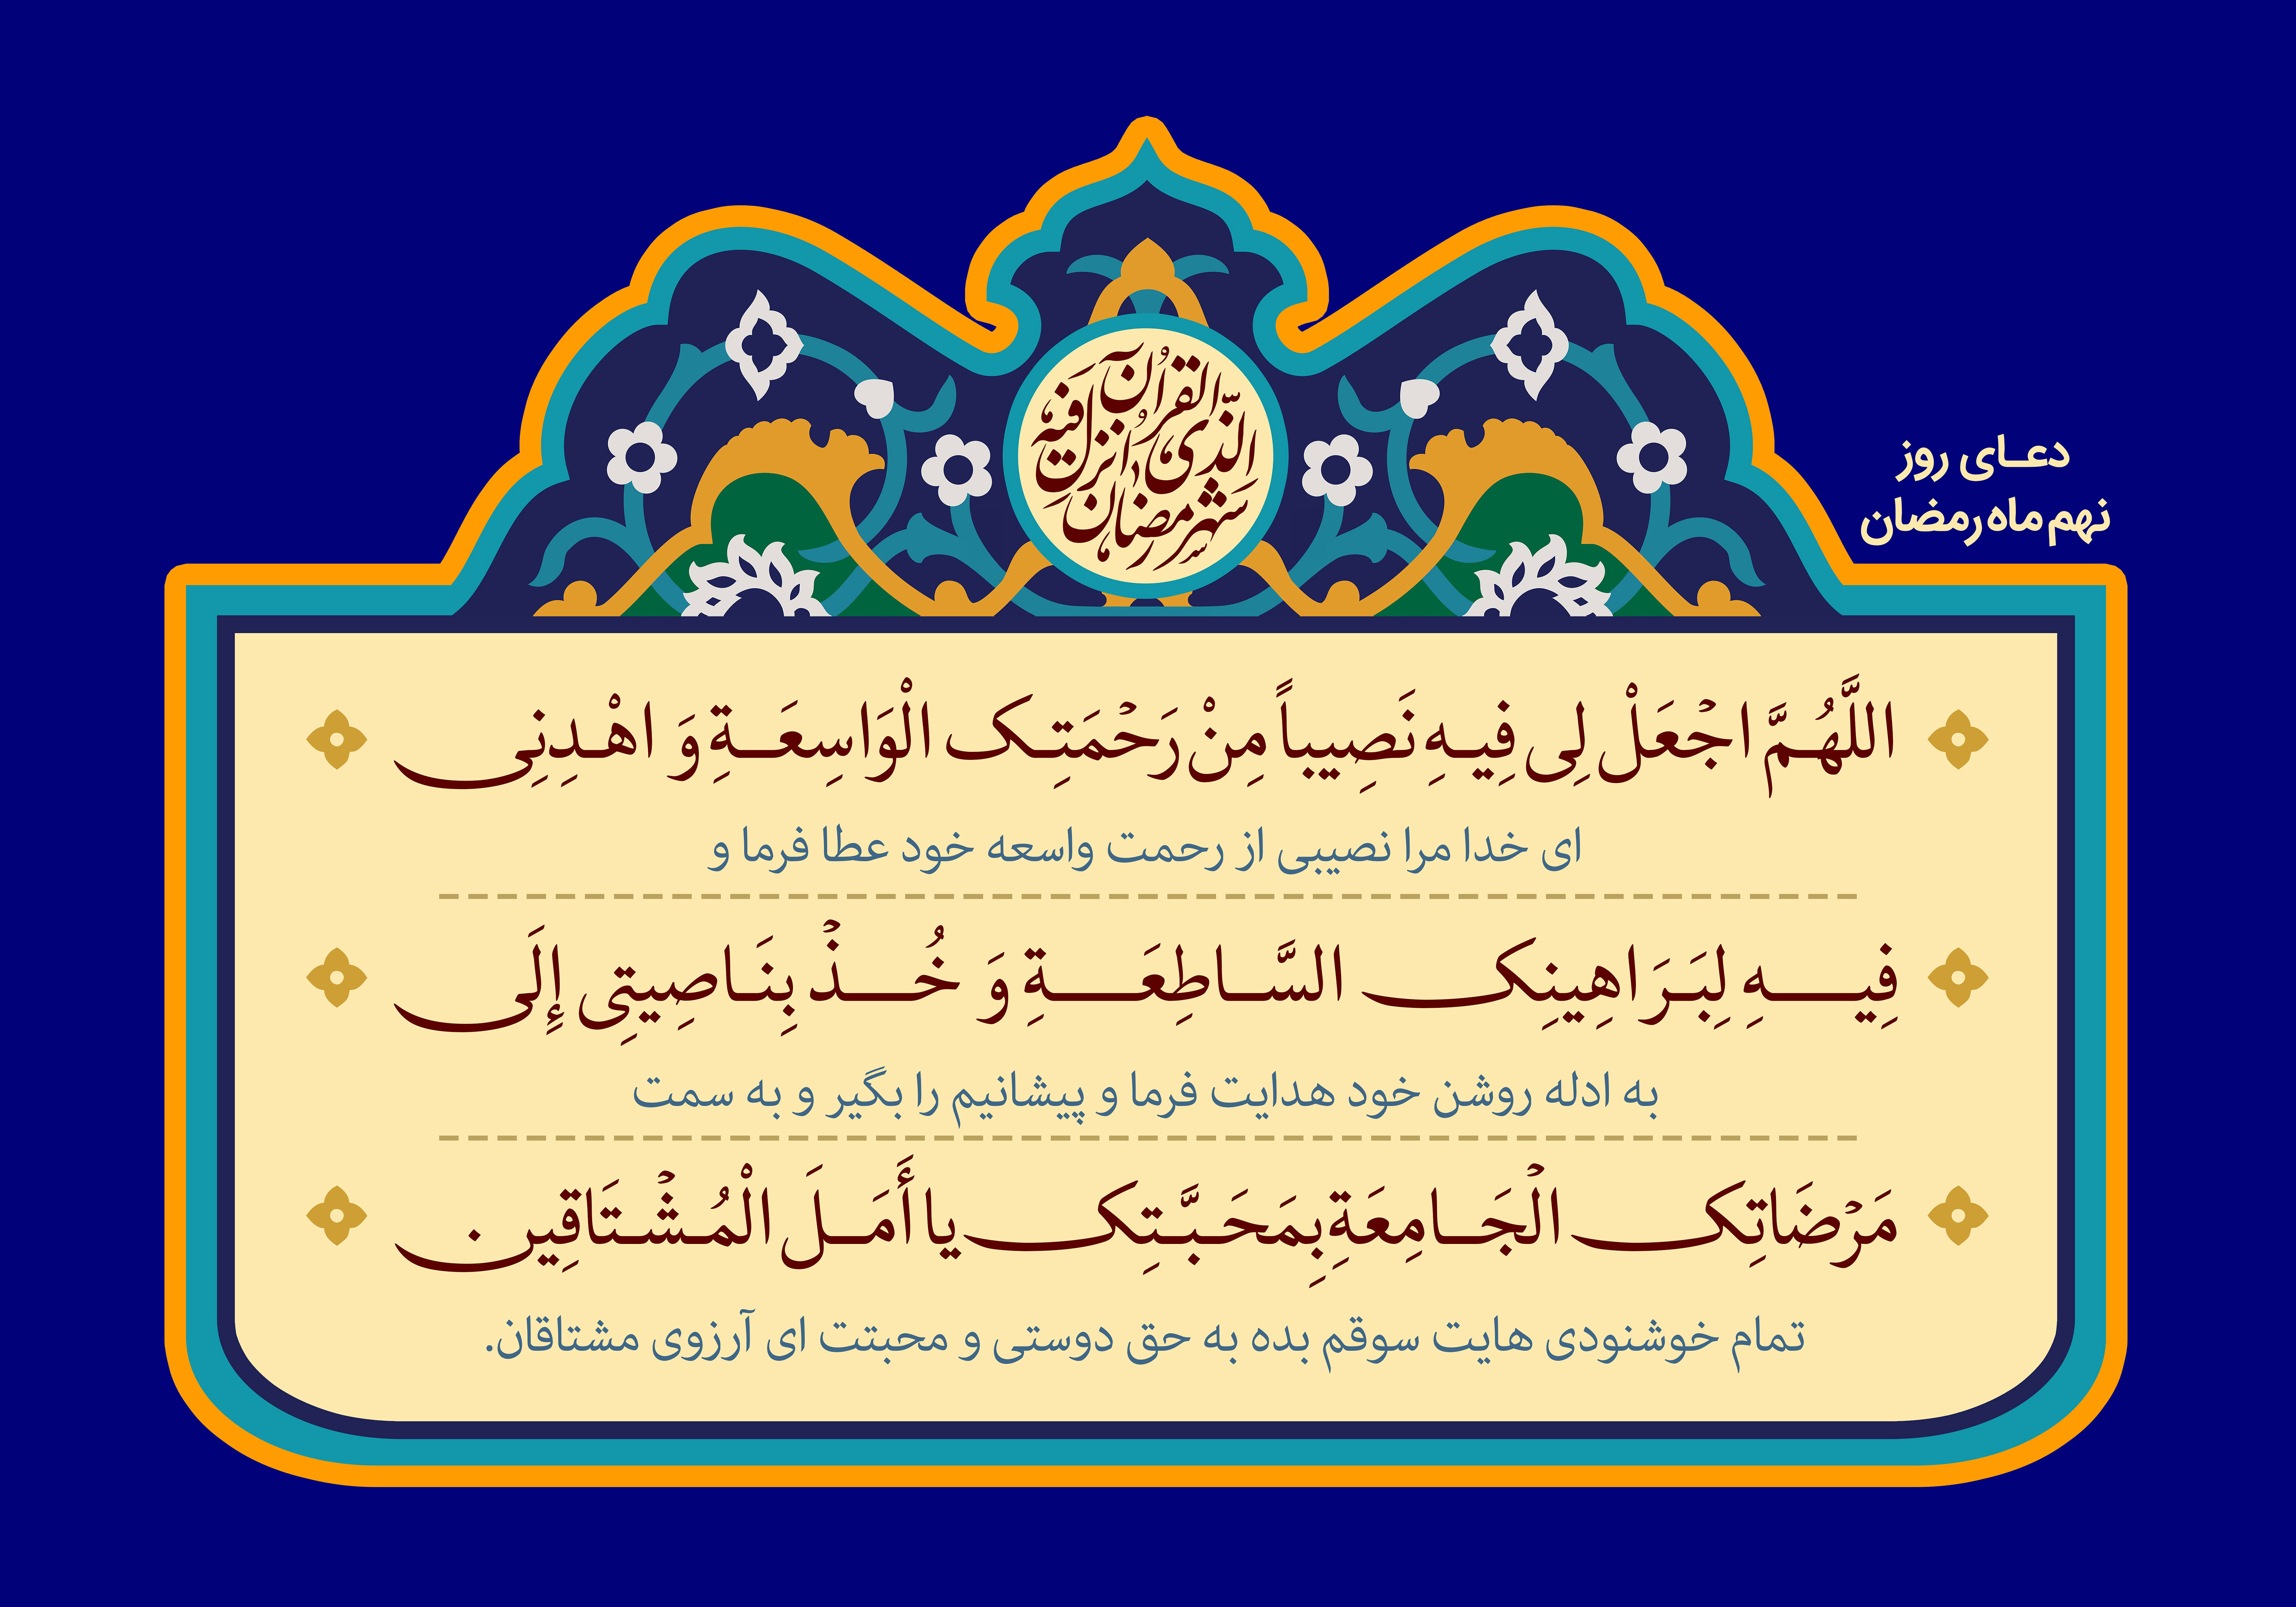 شهر رمضان الذی انزل فیه القرآن
دعای روز
نهم ماه رمضان
اللَّهُمَّ اجْعَلْ لِی فِیهِ نَصِیباً مِنْ رَحْمَتِک الْوَاسِعَةِ وَ اهْدِنِی
ای خدا مرا نصیبی از رحمت واسعه خود عطا فرما و
فِیهِ لِبَرَاهِینِک السَّاطِعَةِ وَ خُذْ بِنَاصِیتِی إِلَی
به ادله روشن خود هدایت فرما و پیشانیم را بگیر و به سمت
مَرْضَاتِک الْجَامِعَةِ بِمَحَبَّتِک یا أَمَلَ الْمُشْتَاقِینَ .
تمام خوشنودی هایت سوقم بده به حق دوستی و محبتت ای آرزوی مشتاقان.